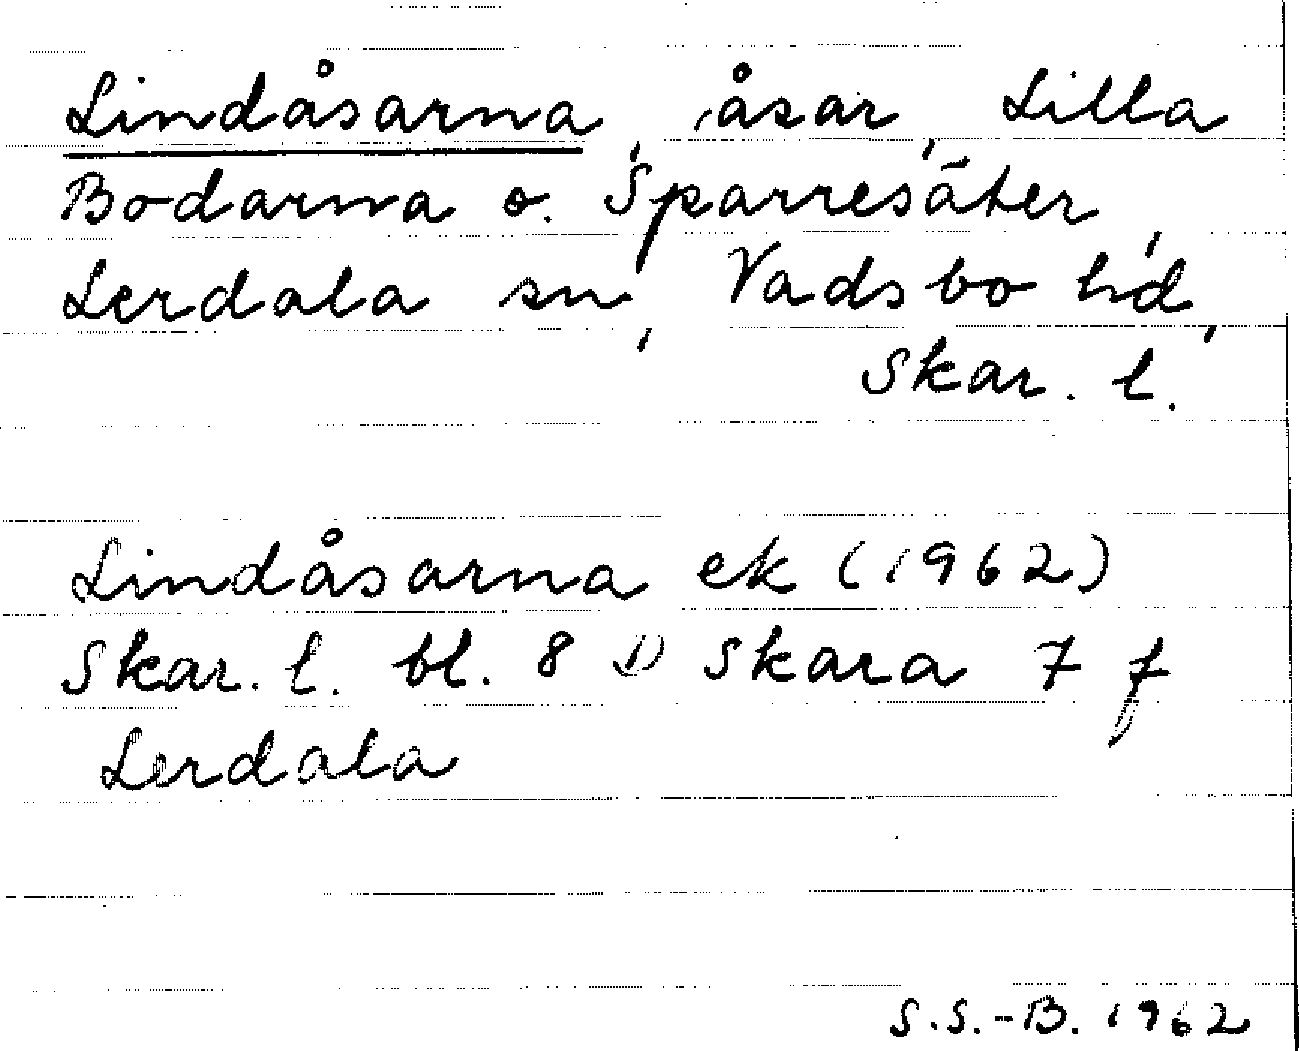 Lindåsarna, åsar, Lilla
Bodarna o. Sparresäter,
Lerdala sn, Vadsbo hd,
Skar. l.
Lindåsarna ek (1962)
Skar. l. bl. 8 D Skara 7 f
Lerdala
S.S.-B. 1962